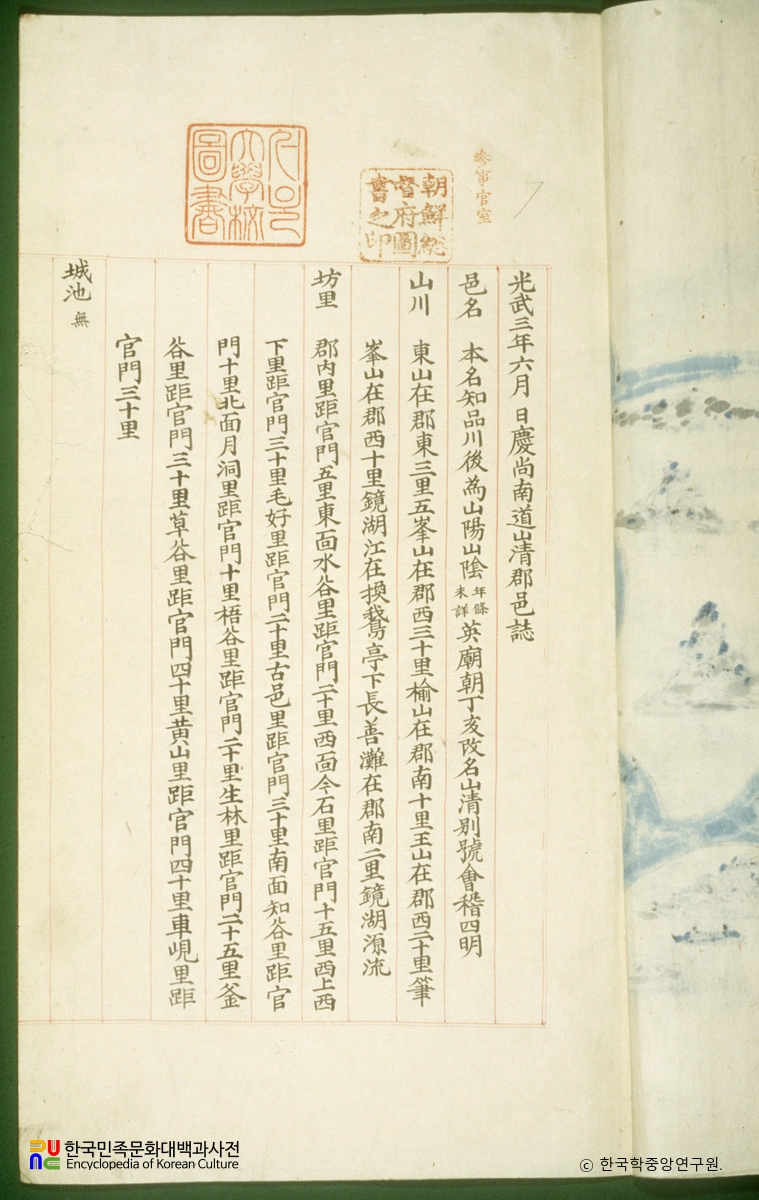 光武三年六月 日慶尚南道山清郡邑誌
邑名 本名知品川後為山陽山陰年條未詳英廟朝丁亥改名山清別號會稽四明
山川 東山在郡東三里五峯山在郡西三十里榆山在郡南十里王山在郡西二十里筆
峯山在郡西十里鏡湖江在換鵞亭下長善灘在郡南二里鏡湖源流
坊里 郡內里距官門五里東面水谷里距官門二十里西面今石里距官門十五里西上西
下里距官門三十里毛好里距官門二十里古邑里距官門三十里南面知谷里距官
門十里北面月洞里距官門十里梧谷里距官門二十里生林里距官門二十五里釜
谷里距官門三十里草谷里距官門四十里黃山里距官門四十里車峴里距
官門三十里
城池 無
參事官室
朝鮮總
督府圖
書之印
大學校
圖書
한국민족문화대백과사전
Encyclopedia of Korean Culture
© 한국학중앙연구원.